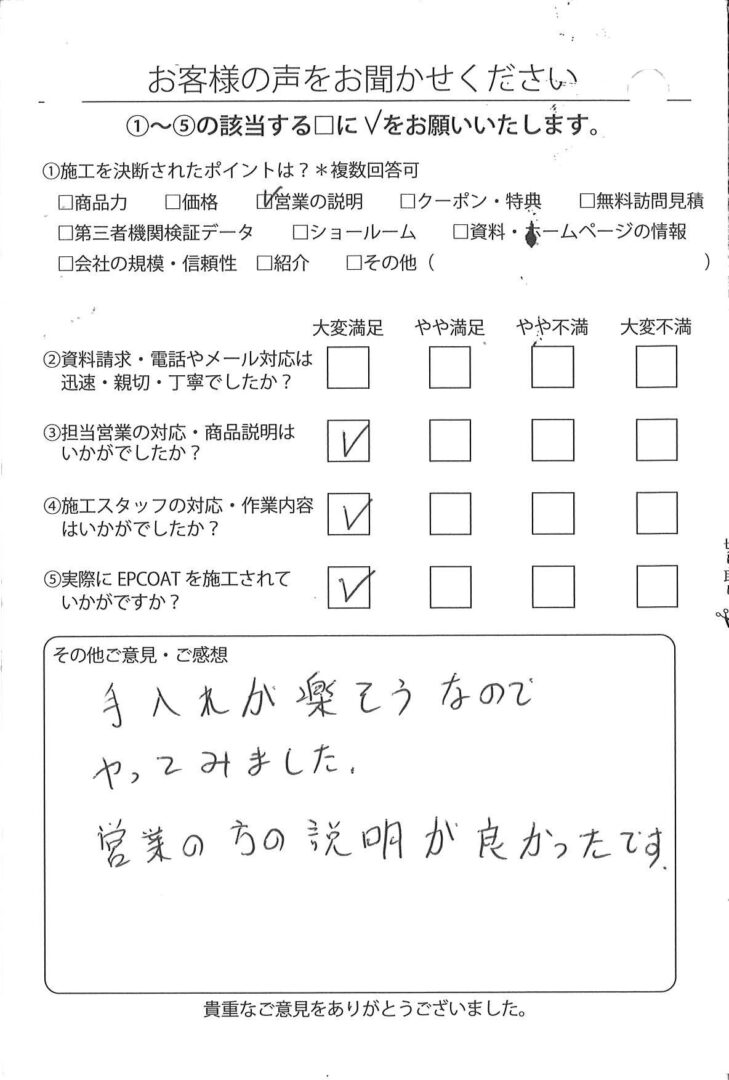 お客様の声をお聞かせください
①～⑤の該当する□に√をお願いいたします。
①施工を決断されたポイントは？＊複数回答可
□商品力 □価格 ☑営業の説明 □クーポン・特典 □無料訪問見積
□第三者機関検証データ □ショールーム □資料・ホームページの情報
□会社の規模・信頼性 □紹介 □その他（ ）
大変満足 やや満足 やや不満 大変不満
②資料請求・電話やメール対応は
迅速・親切・丁寧でしたか？ □ □ □ □
③担当営業の対応・商品説明は
いかがでしたか？ ☑ □ □ □
④施工スタッフの対応・作業内容
はいかがでしたか？ ☑ □ □ □
⑤実際に EPCOAT を施工されて
いかがですか？ ☑ □ □ □
その他ご意見・ご感想
手入れが楽そうなので
やってみました.
営業の方の説明が良かったです.
貴重なご意見をありがとうございました。